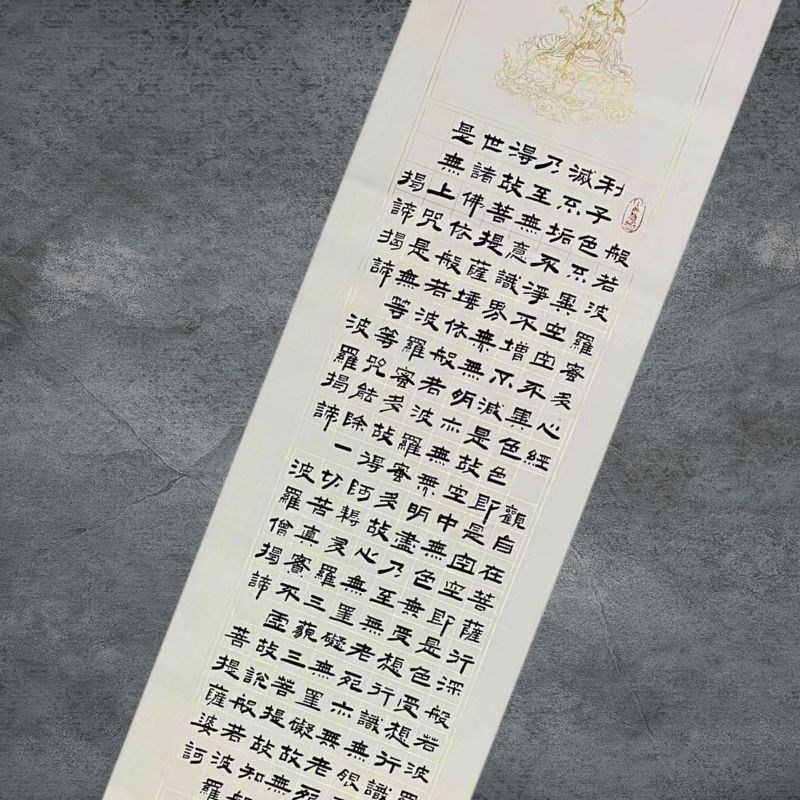 般若波羅蜜多心經 觀自在菩薩行深般若波羅
利子色不異空空不異色色即是空空即是色受想行識
滅不垢不淨不增不減是故空中無色無受想行識無眼
乃至無意識界無無明亦無無明盡乃至無老死亦無老死
得故菩提薩埵依般若波羅蜜多故心無罣礙無罣礙故無
世諸佛依般若波羅蜜多故得阿耨多羅三藐三菩提故知般
是無上咒是無等等咒能除一切苦真實不虛故說般若波羅
揭諦揭諦 波羅揭諦 波羅僧揭諦 菩提薩婆訶